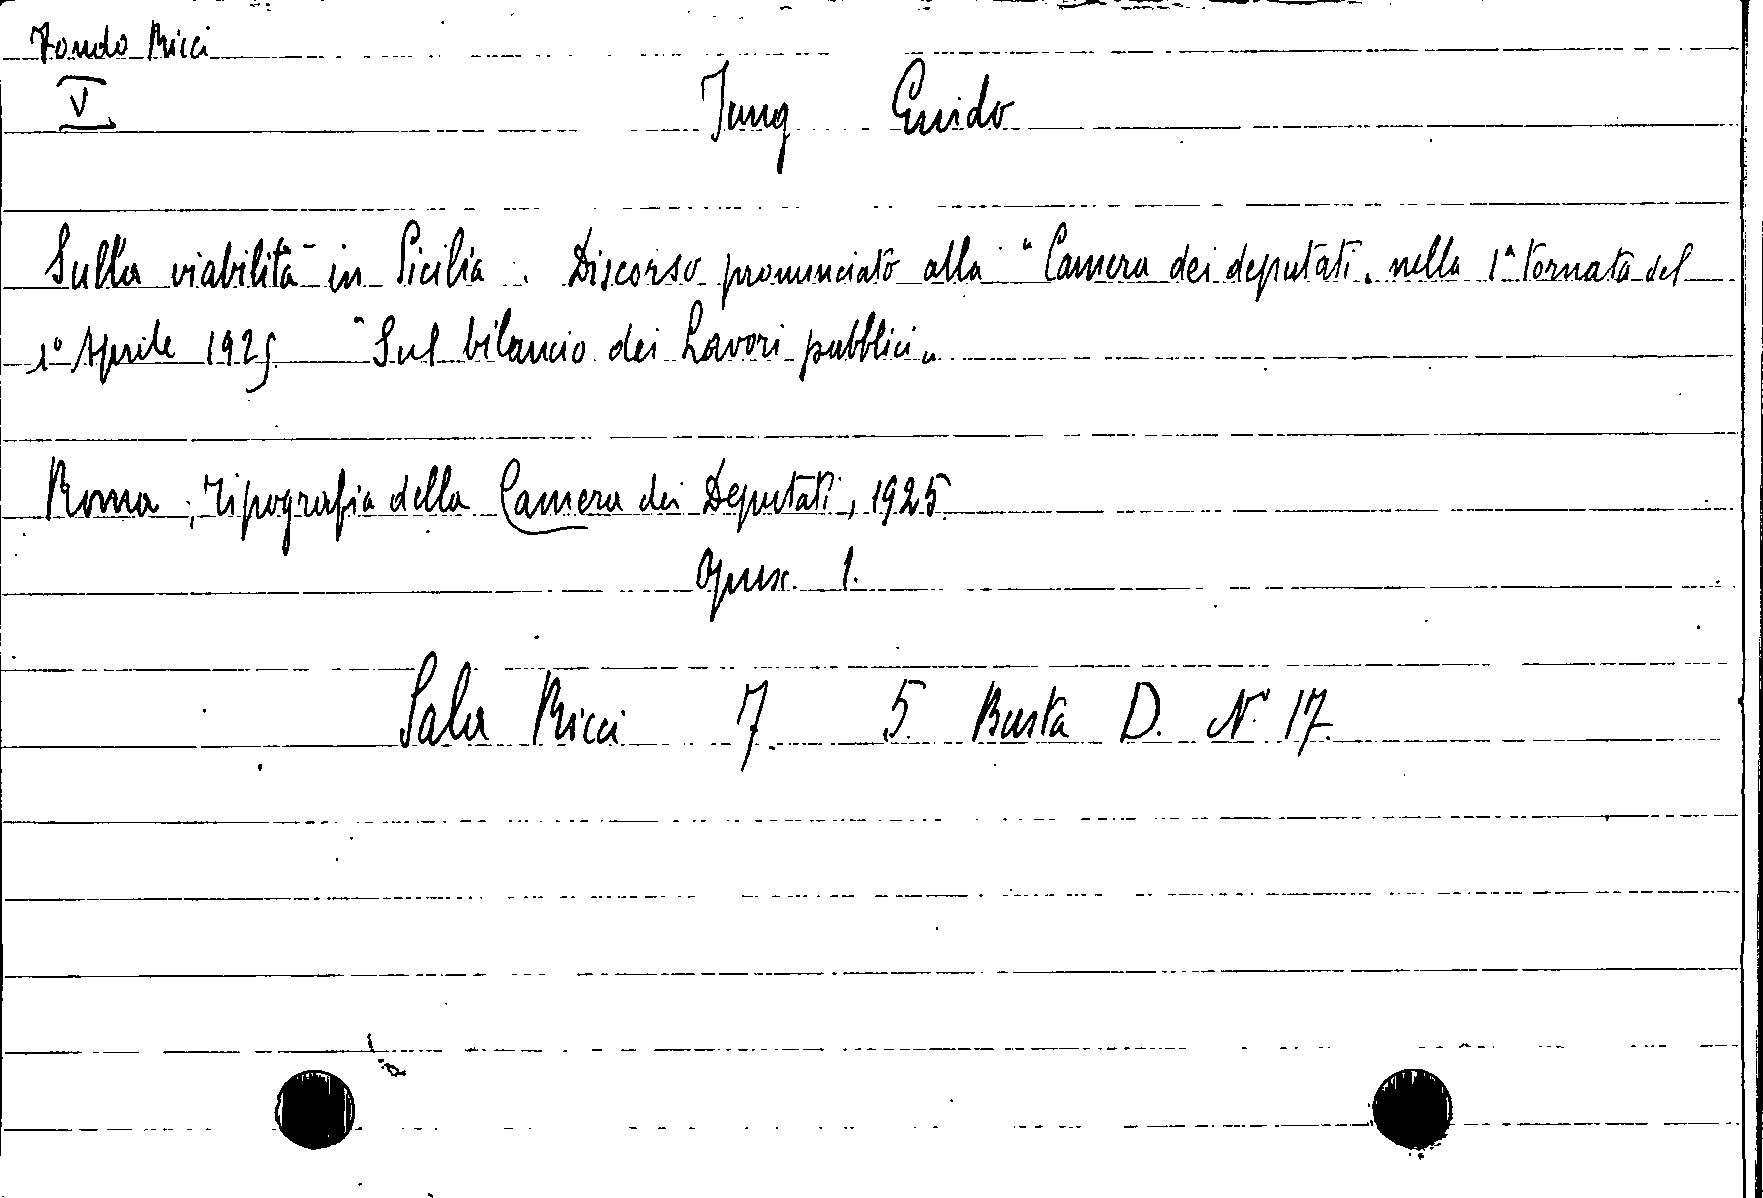 Fondo Ricci
V
Jung Guido
Sulla viabilità in Sicilia. Discorso pronunciato alla "Camera dei deputati" nella 1ª tornata del
1° Aprile 1925 "Sul bilancio dei Lavori pubblici"
Roma, Tipografia della Camera dei Deputati, 1925
Opusc. 1.
Sala Ricci 7 5. Busta D. N. 17.